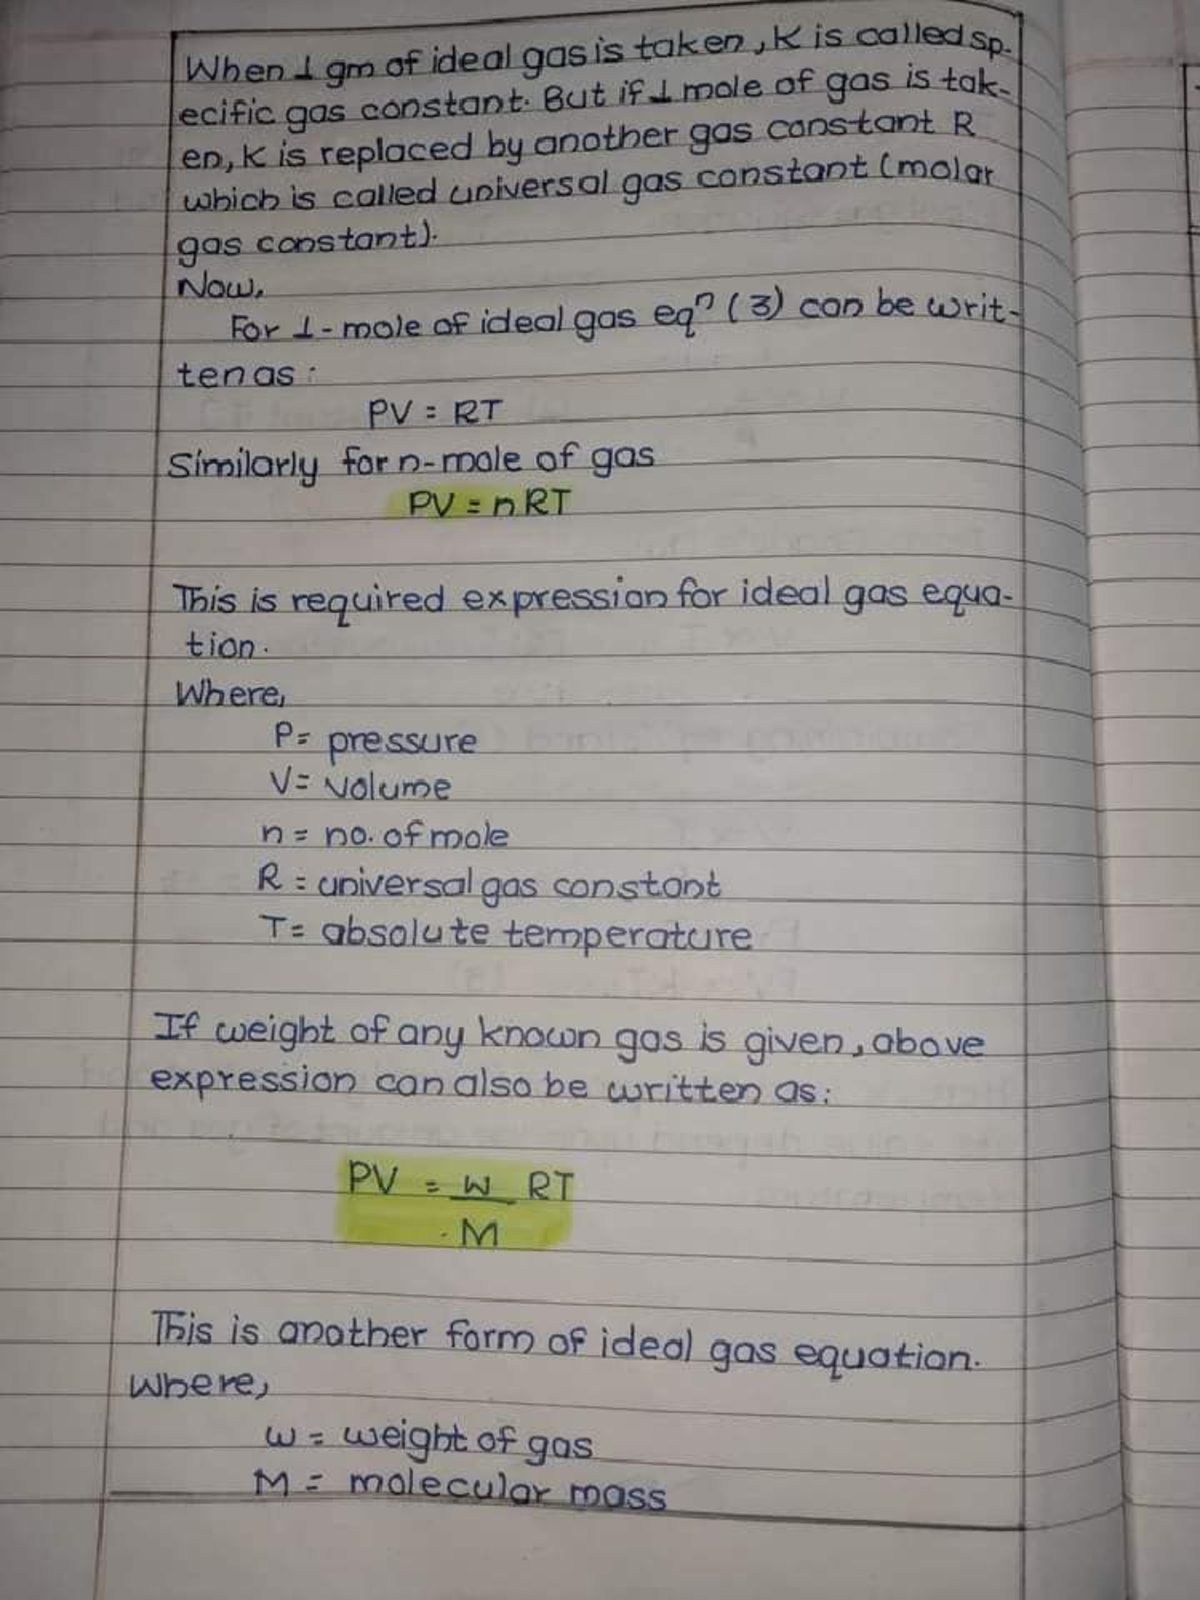 When 1 gm of ideal gas is taken, K is called sp-
ecific gas constant. But if 1 mole of gas is tak-
en, K is replaced by another gas constant R
which is called universal gas constant (molar
gas constant).
Now,
For 1-mole of ideal gas eqⁿ (3) can be writ-
ten as:
PV = RT
Similarly for n-mole of gas
PV = nRT
This is required expression for ideal gas equa-
tion.
Where,
P= pressure
V= volume
n= no. of mole
R = universal gas constant
T= absolute temperature
If weight of any known gas is given, above
expression can also be written as:
PV = w RT
M
This is another form of ideal gas equation.
Where,
w = weight of gas
M = molecular mass